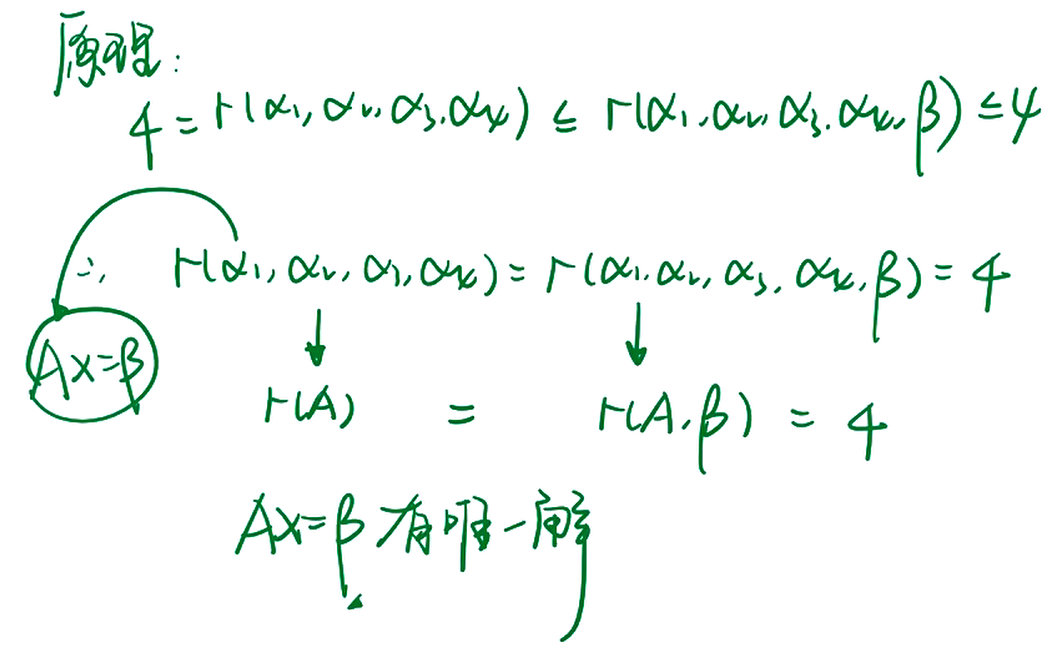 原理:
4 = r(α₁, α₂, α₃, α₄) ≤ r(α₁, α₂, α₃, α₄, β) ≤ 4
∴ r(α₁, α₂, α₃, α₄) = r(α₁, α₂, α₃, α₄, β) = 4
Ax=β
↓ ↓
r(A) = r(A, β) = 4
Ax=β 有唯一解